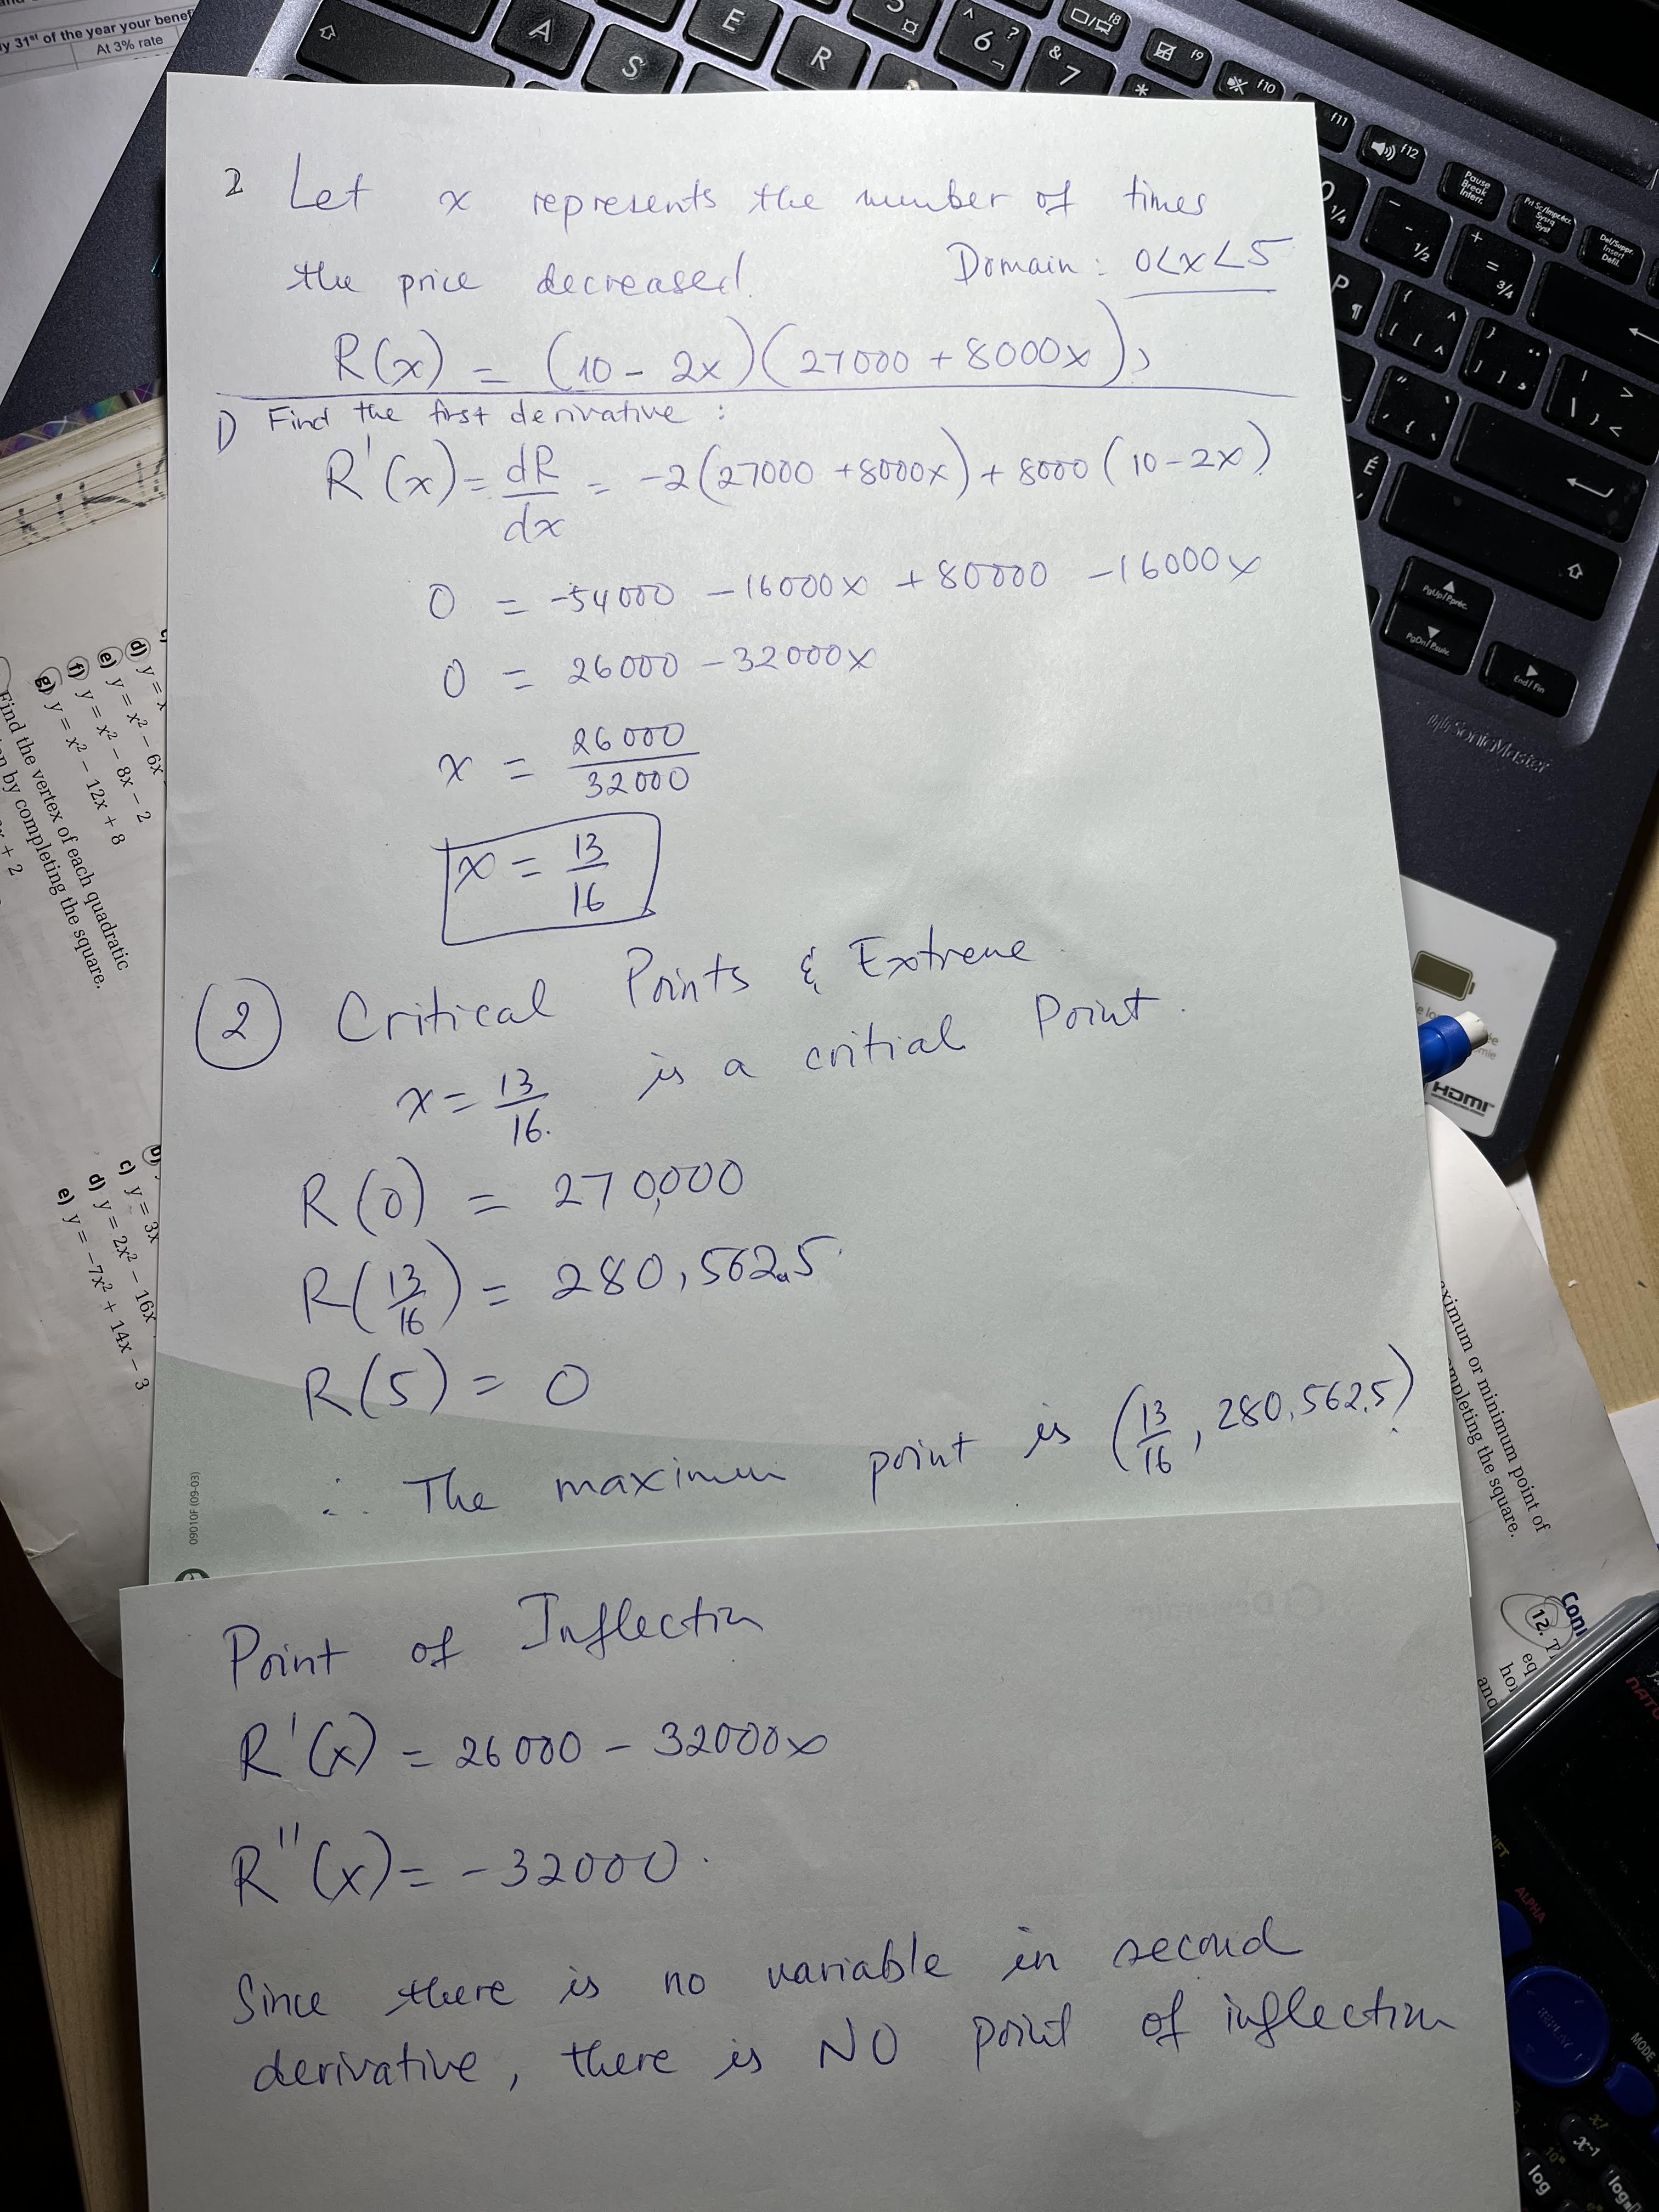 y 31st of the year your benef
At 3% rate
2 Let x represents the number of times
the price decreased. Domain: 0<x<5
R(x) = (10 - 2x)(27000 + 8000x),
1) Find the first derivative:
R'(x) = dR/dx = -2(27000 + 8000x) + 8000(10-2x)
0 = -54000 - 16000x + 80000 - 16000x
0 = 26000 - 32000x
x = 26000/32000
x = 13/16
(2) Critical Points & Extreme
x = 13/16. is a critial Point.
R(0) = 270,000
R(13/16) = 280,562.5
R(5) = 0
∴ The maximum point is (13/16, 280,562.5)
09010F (09-03)
Point of Inflection
R'(x) = 26000 - 32000x
R''(x) = -32000.
Since there is no variable in second
derivative, there is NO point of inflection
d) y = x
e) y = x² - 6x
f) y = x² - 8x - 2
g) y = x² - 12x + 8
Find the vertex of each quadratic
by completing the square.
x + 2
b)
c) y = 3x
d) y = 2x² - 16x
e) y = -7x² + 14x - 3
ximum or minimum point of
ompleting the square.
Con
12. T
eq
ho
and
A
S
E
R
5
6 ?
& 7
*
f8
f9
f10
f11
f12
Pause Break Interr.
Prt Sc/Impr.écr. Sysrq Syst
Del/Suppr. Insert Défil.
1/4
1/2
3/4
P
É
PgUp/Pgpréc.
PgDn/Pgsuiv.
End/Fin
SonicMaster
HDMI
SHIFT
ALPHA
REPLAY
MODE
x!
x-1
log